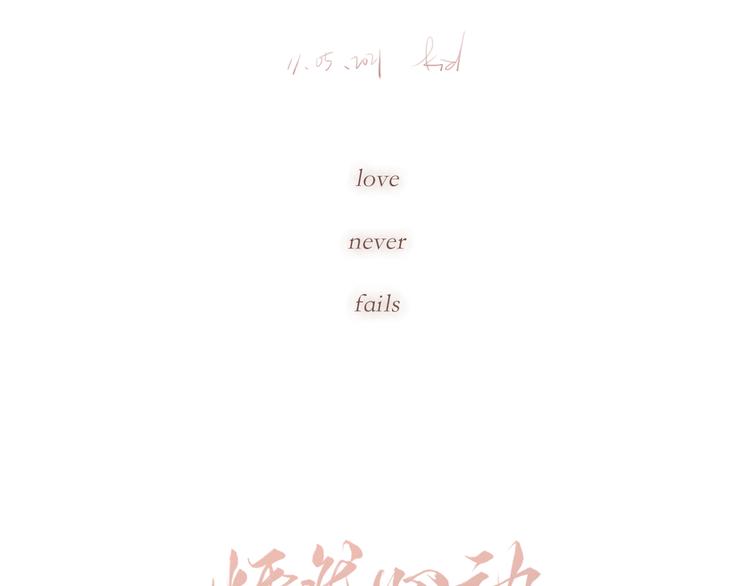 11.05.2021 kid
love
never
fails